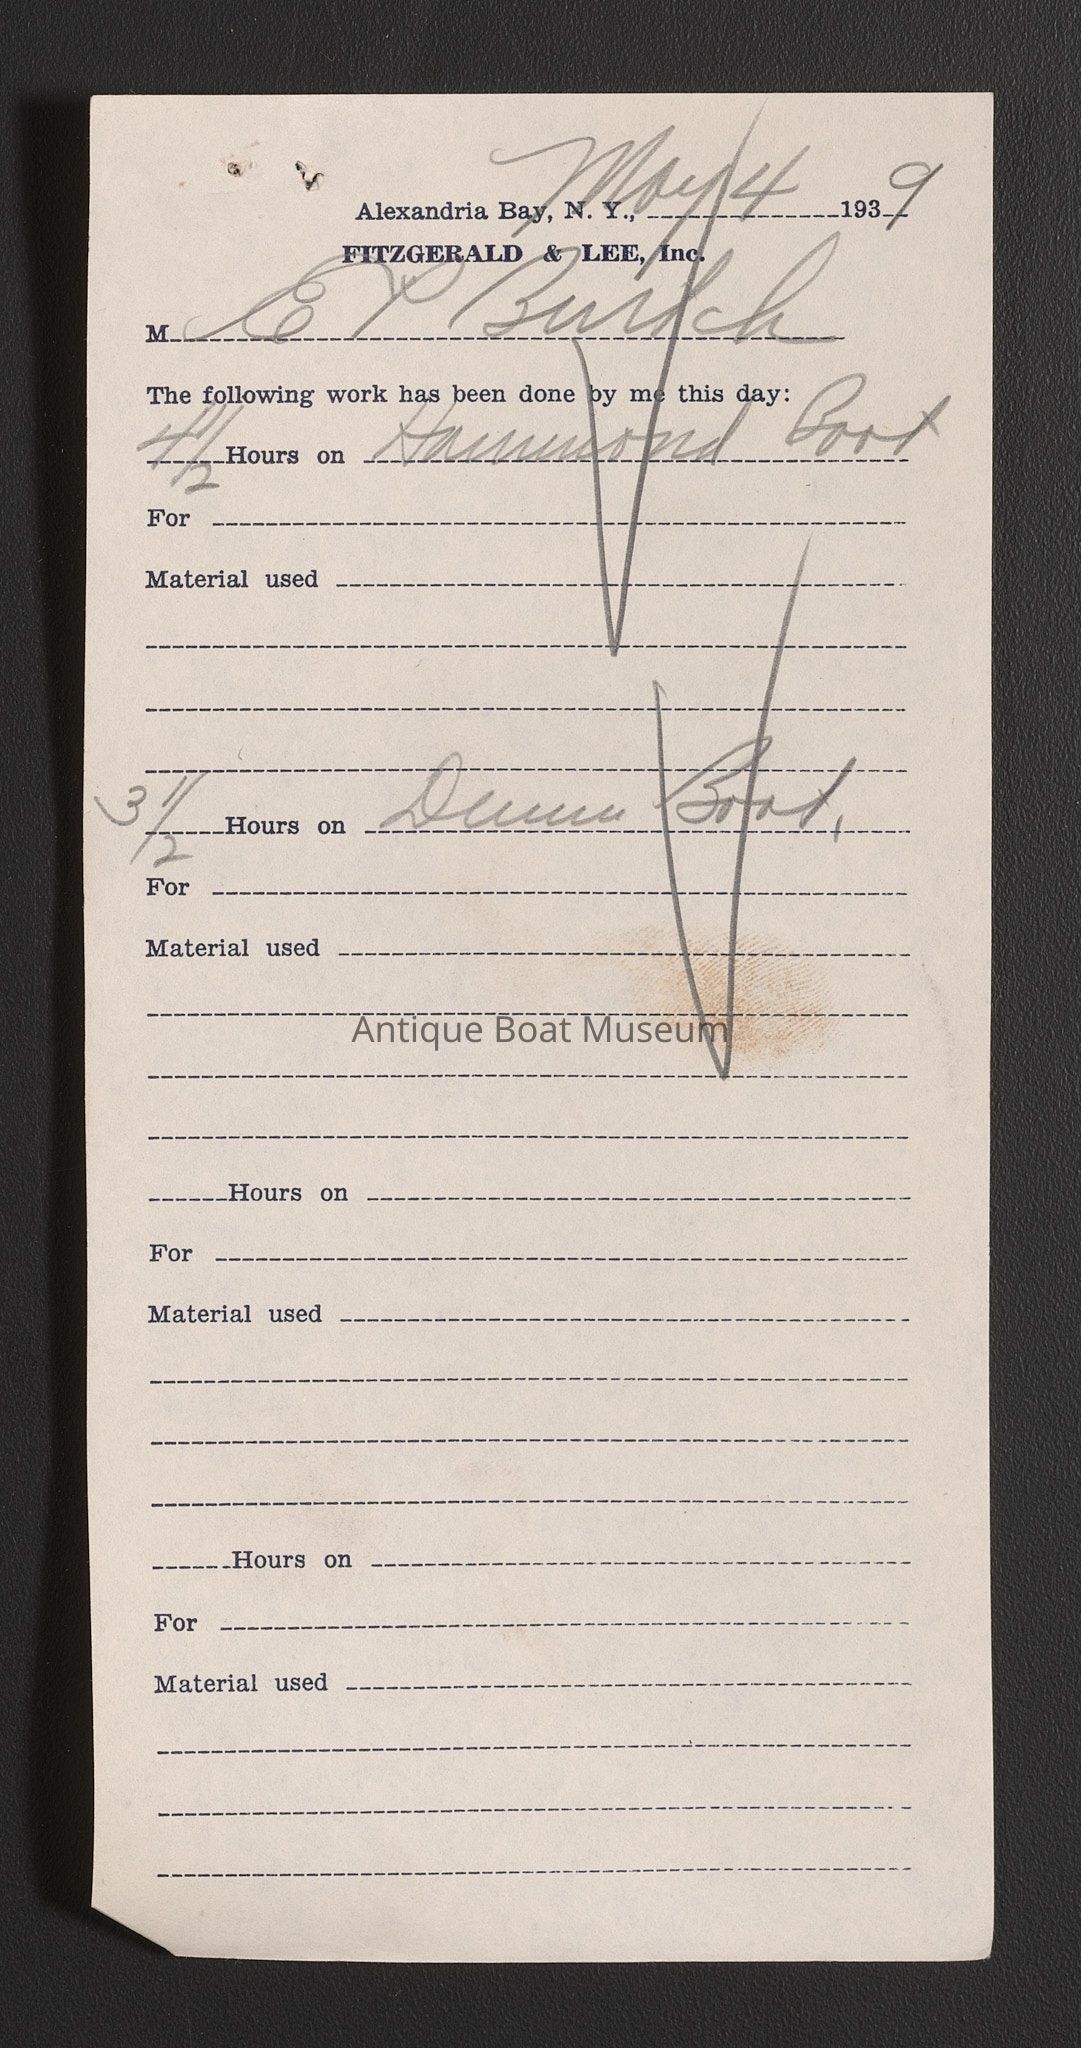 Alexandria Bay, N. Y., May 4 1939
FITZGERALD & LEE, Inc.
M E P Burtch
The following work has been done by me this day:
4 1/2 Hours on Hammond Boat
For
Material used
3 1/2 Hours on Boat.
For
Material used
Antique Boat Museum
Hours on
For
Material used
Hours on
For
Material used